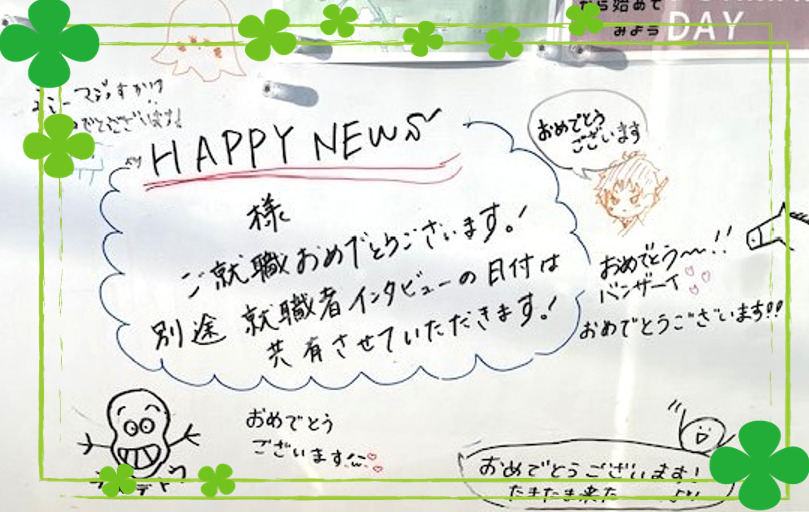 から始めて
みよう
DAY
HAPPY NEWS
様
ご就職おめでとうございます。!
別途 就職者インタビューの日付は
共有させていただきます。!
おめでとう
ございます
おめでとう〜!!
バンザーイ
おめでとうございます!!
おめでとう
ございます
おめでとうございます!
たまたま来た